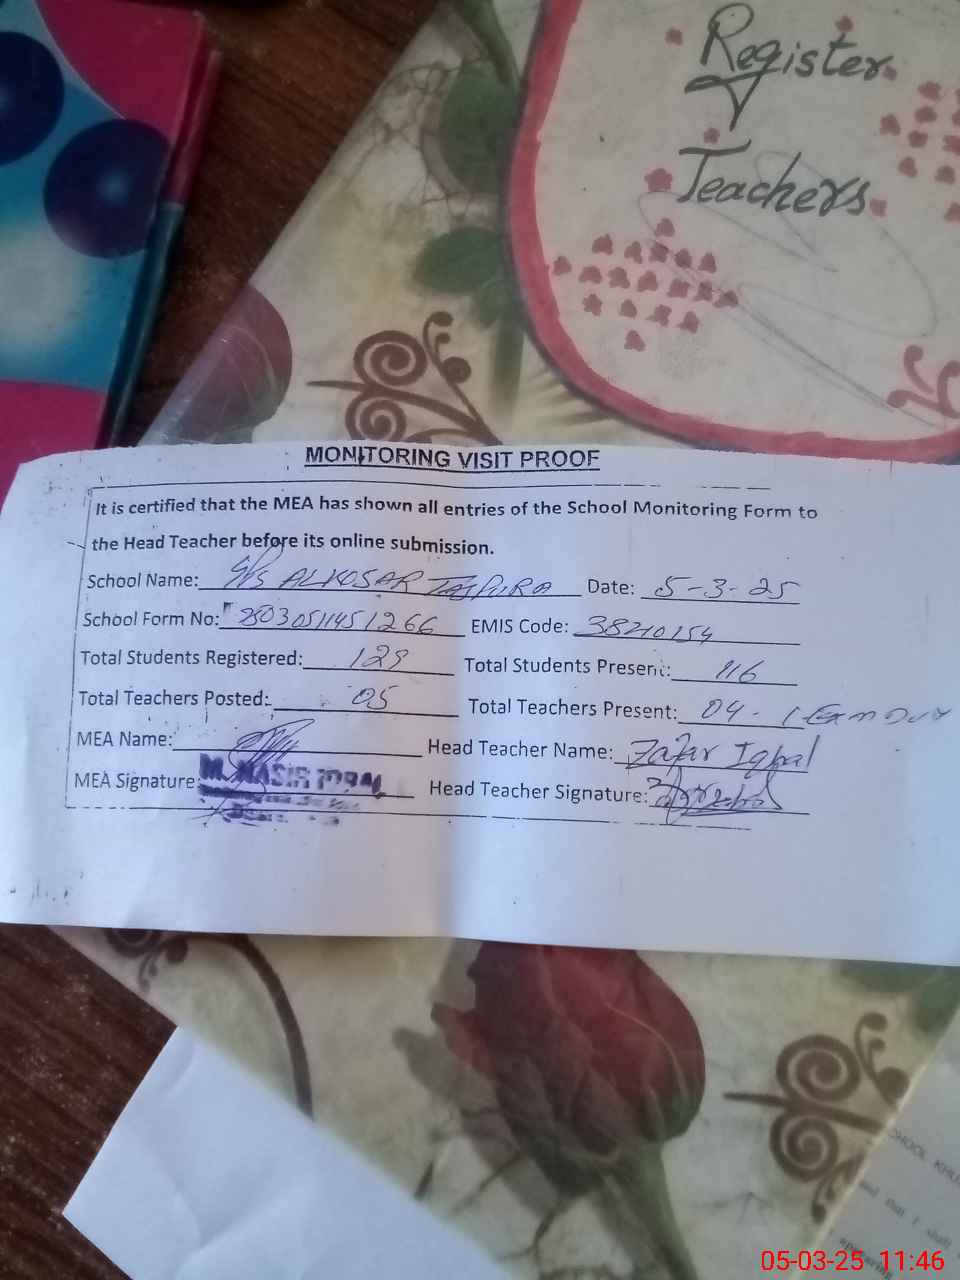 Register
Teachers
MONITORING VISIT PROOF
It is certified that the MEA has shown all entries of the School Monitoring Form to
the Head Teacher before its online submission.
School Name: GPS ALKOSAR TAJPURA Date: 5-3-25
School Form No: 2503051145 1266 EMIS Code: 38210154
Total Students Registered: 129 Total Students Present: 116
Total Teachers Posted: 05 Total Teachers Present: 04 - 1 Exm Duty
MEA Name: Head Teacher Name: Zafar Iqbal
MEA Signature: M. NASIR IQBAL Head Teacher Signature:
SCHOOL
that I shall
05-03-25 11:46